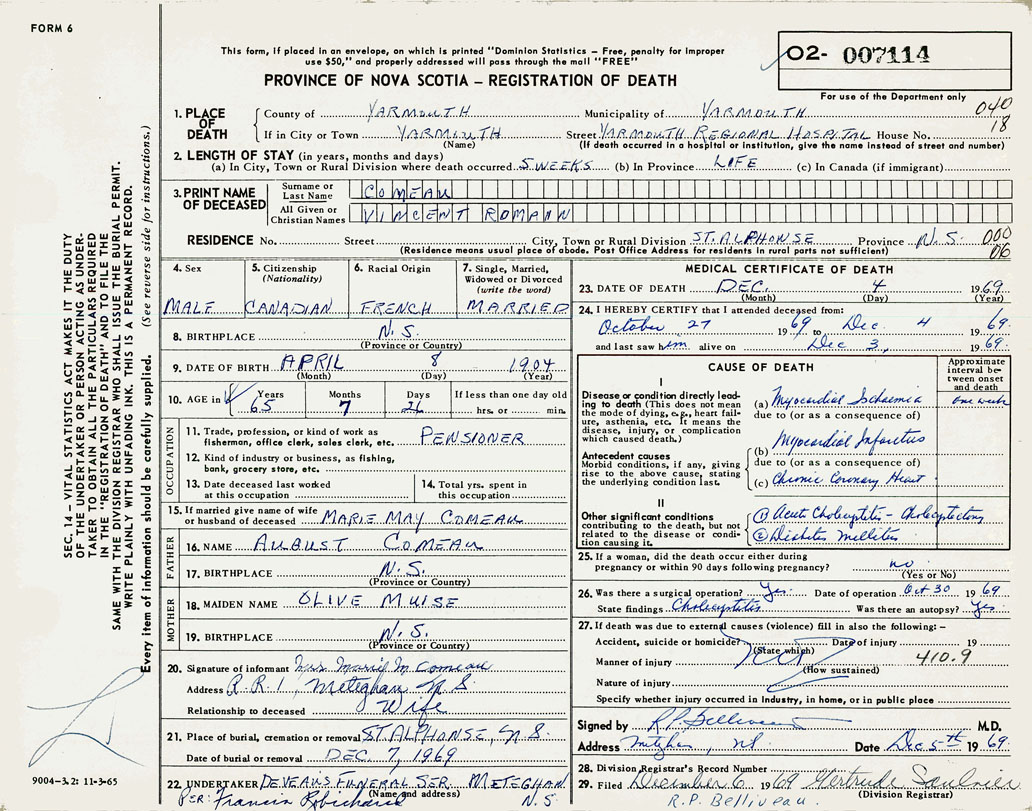 FORM 6
This form, if placed in an envelope, on which is printed "Dominion Statistics – Free, penalty for improper
use $50," and properly addressed will pass through the mail "FREE"
O2- 007114
PROVINCE OF NOVA SCOTIA – REGISTRATION OF DEATH
For use of the Department only
040
18
1. PLACE OF DEATH
County of YARMOUTH Municipality of YARMOUTH
If in City or Town YARMOUTH Street YARMOUTH REGIONAL HOSPITAL House No.
(Name) (If death occurred in a hospital or institution, give the name instead of street and number)
2. LENGTH OF STAY (in years, months and days)
(a) In City, Town or Rural Division where death occurred 5 WEEKS (b) In Province LIFE (c) In Canada (if immigrant)
3. PRINT NAME OF DECEASED
Surname or Last Name COMEAU
All Given or Christian Names VINCENT ROMANN
RESIDENCE No. Street City, Town or Rural Division ST. ALPHONSE Province N.S. 000
06
(Residence means usual place of abode. Post Office Address for residents in rural parts not sufficient)
4. Sex MALE
5. Citizenship (Nationality) CANADIAN
6. Racial Origin FRENCH
7. Single, Married, Widowed or Divorced (write the word) MARRIED
8. BIRTHPLACE N.S.
(Province or Country)
9. DATE OF BIRTH APRIL 8 1904
(Month) (Day) (Year)
10. AGE in Years Months Days If less than one day old
65 7 26 hrs. or min.
OCCUPATION
11. Trade, profession, or kind of work as
fisherman, office clerk, sales clerk, etc. PENSIONER
12. Kind of industry or business, as fishing,
bank, grocery store, etc.
13. Date deceased last worked
at this occupation
14. Total yrs. spent in
this occupation
15. If married give name of wife
or husband of deceased MARIE MAY COMEAU
FATHER
16. NAME AUGUST COMEAU
17. BIRTHPLACE N.S.
(Province or Country)
MOTHER
18. MAIDEN NAME OLIVE MUISE
19. BIRTHPLACE N.S.
(Province or Country)
20. Signature of informant Mrs Marie M. Comeau
Address R.R.1, Meteghan N S
Relationship to deceased Wife
21. Place of burial, cremation or removal ST. ALPHONSE, N S.
Date of burial or removal DEC. 7, 1969
22. UNDERTAKER DEVEAUS FUNERAL SER. METEGHAN
(Name and address) N.S.
Per: Francis Robichaud
MEDICAL CERTIFICATE OF DEATH
23. DATE OF DEATH DEC. 4 1969
(Month) (Day) (Year)
24. I HEREBY CERTIFY that I attended deceased from:
October 27 1969 to Dec 4 1969.
and last saw him alive on Dec 3, 1969.
CAUSE OF DEATH
Approximate interval between onset and death
I
Disease or condition directly leading to death (This does not mean
the mode of dying, e.g., heart failure, asthenia, etc. It means the
disease, injury, or complication
which caused death.)
(a) Myocardial Ischaemia one week
due to (or as a consequence of)
Antecedent causes
Morbid conditions, if any, giving
rise to the above cause, stating
the underlying condition last.
(b) Myocardial Infarctus
due to (or as a consequence of)
(c) Chronic Coronary Heart
II
Other significant conditions
contributing to the death, but not
related to the disease or condition causing it.
① Acute Cholecystitis - Cholecystectomy
② Diabetes Mellitus
25. If a woman, did the death occur either during
pregnancy or within 90 days following pregnancy? no
(Yes or No)
26. Was there a surgical operation? Yes. Date of operation Oct 30 1969
State findings Cholecystitis Was there an autopsy? Yes.
27. If death was due to external causes (violence) fill in also the following:–
Accident, suicide or homicide? Date of injury 19
(State which)
Manner of injury 410.9
(How sustained)
Nature of injury
Specify whether injury occurred in industry, in home, or in public place
Signed by R.P. Belliveau M.D.
Address Meteghan, NS Date Dec 5th 1969
28. Division Registrar's Record Number
29. Filed December 6 1969 Gertrude Saulnier
(Division Registrar)
R.P. Belliveau.
SEC. 14 – VITAL STATISTICS ACT MAKES IT THE DUTY
OF THE UNDERTAKER OR PERSON ACTING AS UNDERTAKER TO OBTAIN ALL THE PARTICULARS REQUIRED
IN THE "REGISTRATION OF DEATH" AND TO FILE THE
SAME WITH THE DIVISION REGISTRAR WHO SHALL ISSUE THE BURIAL PERMIT.
WRITE PLAINLY WITH UNFADING INK. THIS IS A PERMANENT RECORD.
Every item of information should be carefully supplied. (See reverse side for instructions.)
9004-3.2: 11-3-65